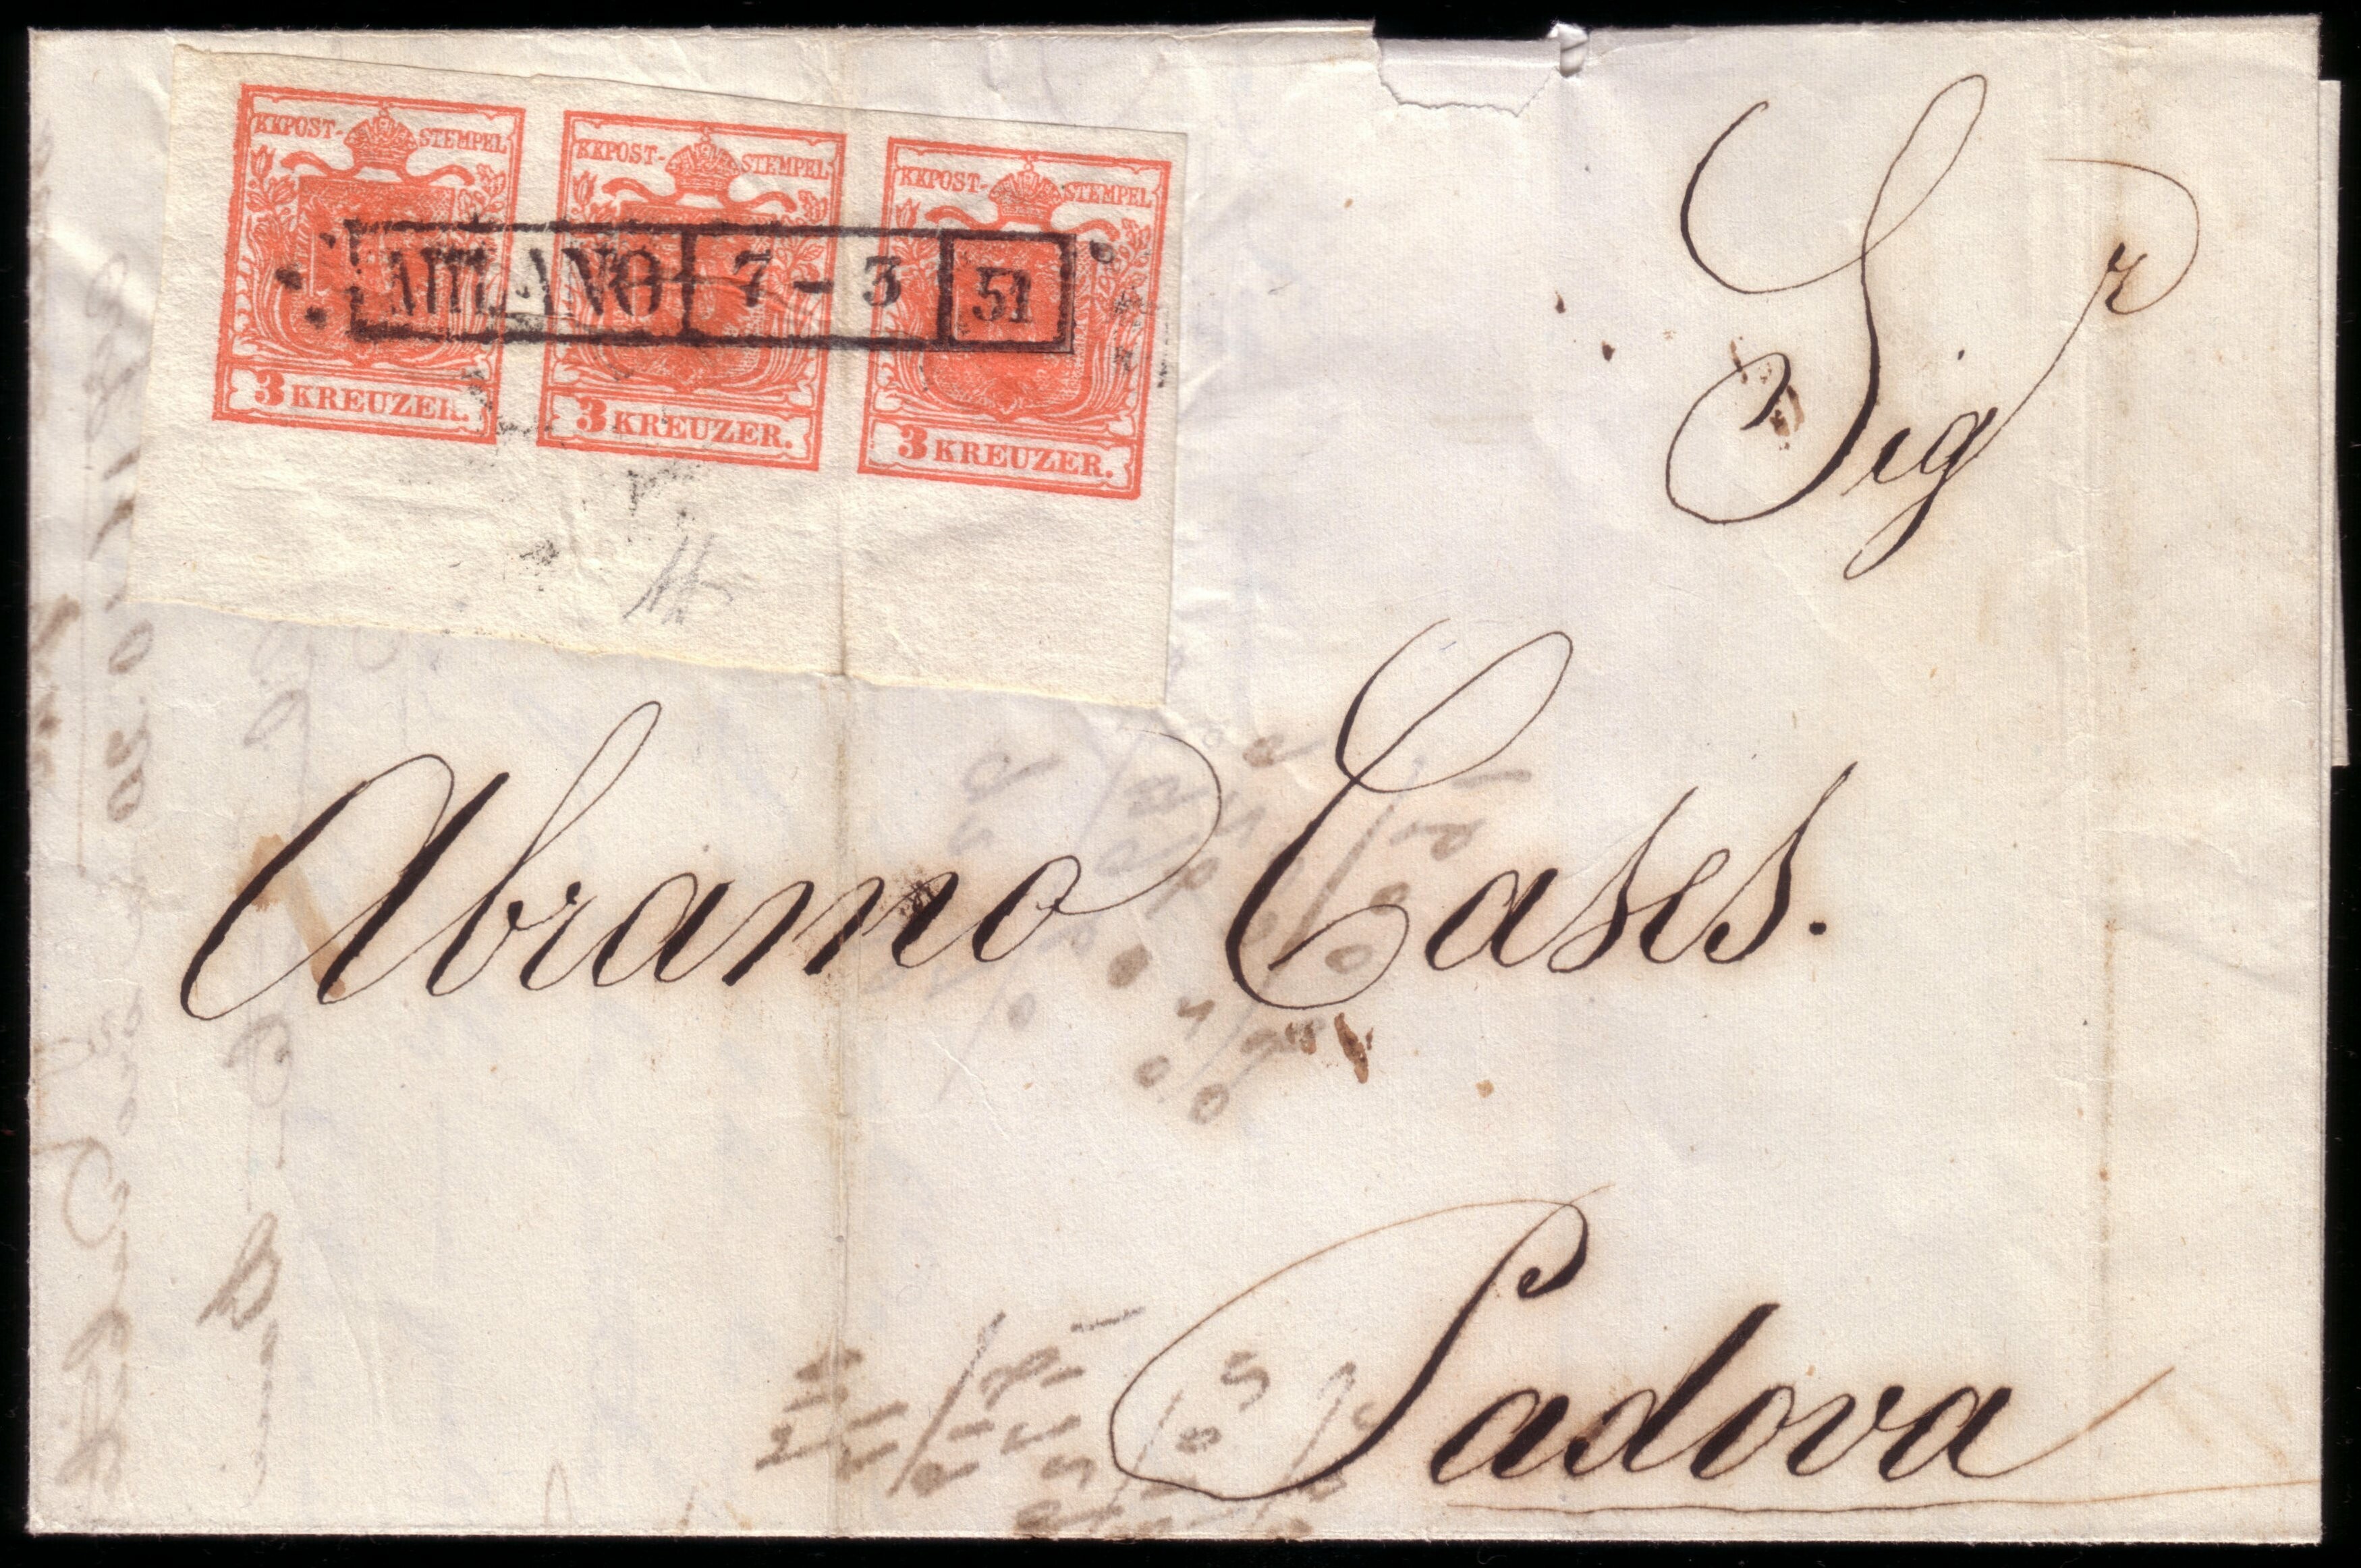 KKPOST- STEMPEL
3 KREUZER.
KKPOST- STEMPEL
3 KREUZER.
KKPOST- STEMPEL
3 KREUZER.
MILANO 7 - 3 51
Sigr
Abramo Cases.
Padova